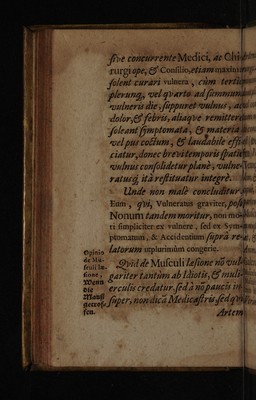 sive concurrente Medici, ac Chi
rurgi ope, & Consilio, etiam maxima
solent curari vulnera, cùm tertio
plerunq, vel qvarto ad summum
vulneris die, suppuret vulnus, ac
dolor, & febris, aliaqve remittere
soleant symptomata, & materia
vel pus coctum, & laudabile effi
ciatur, donec brevi temporis spatio
vulnus consolidetur planè, vulne-
ratusq, ità restituatur integrè.
Unde non malè concluditur
Eum, qvi, Vulneratus graviter, post
Nonum tandem moritur, non mo-
ri simpliciter ex vulnere, sed ex Sym-
ptomatum, & Accidentium suprà re-
latorum utplurimùm congerie.
Qvid de Musculi læsione nō vul-
gariter tantùm ab Idiotis, & muli-
erculis credatur, sed à nō paucis in-
super, non dicā Medicastris, sed
Artem
Opinio
de Mu-
sculi læ-
sione,
Wenn
die
Mauß
getrof-
fen.